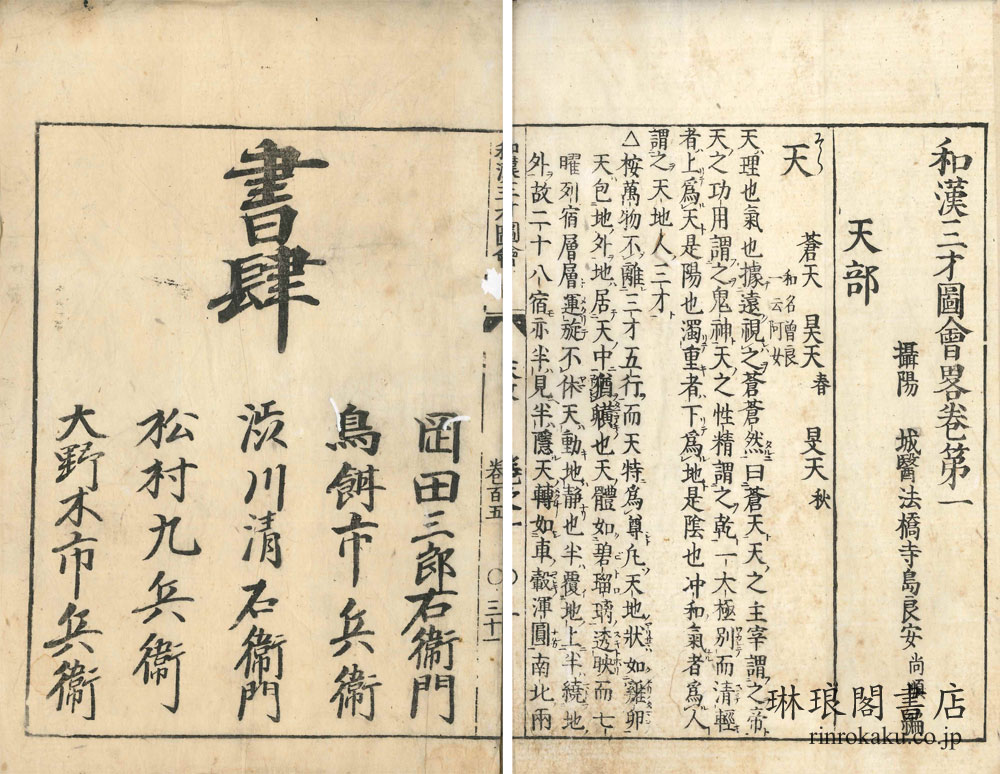 和漢三才圖會畧卷第一
攝陽 城醫法橋寺島良安尚順編
天部
天
そら
蒼天 昊天春 旻天秋
和名曾良
云阿女
天理也氣也據遠視之蒼蒼然曰蒼天天之主宰謂之帝
天之功用謂之鬼神天之性精謂之乾一太極別而清輕
者上爲天是陽也濁重者下爲地是陰也冲和氣者爲人
謂之天地人三才
△按萬物不離三才五行而天特爲尊凡天地狀如雞卵
天包地外地居天中猶横也天體如碧瑠璃透映而七
曜列宿層層運旋不休天動地静也半覆地上半繞地
外故二十八宿亦半見半隱天轉如車轂渾圓南北兩
和漢三才圖會
卷百五 〇 三十一
書肆
岡田三郎右衛門
鳥飼市兵衛
渋川清右衛門
松村九兵衛
大野木市兵衛
琳琅閣書店
rinrokaku.co.jp